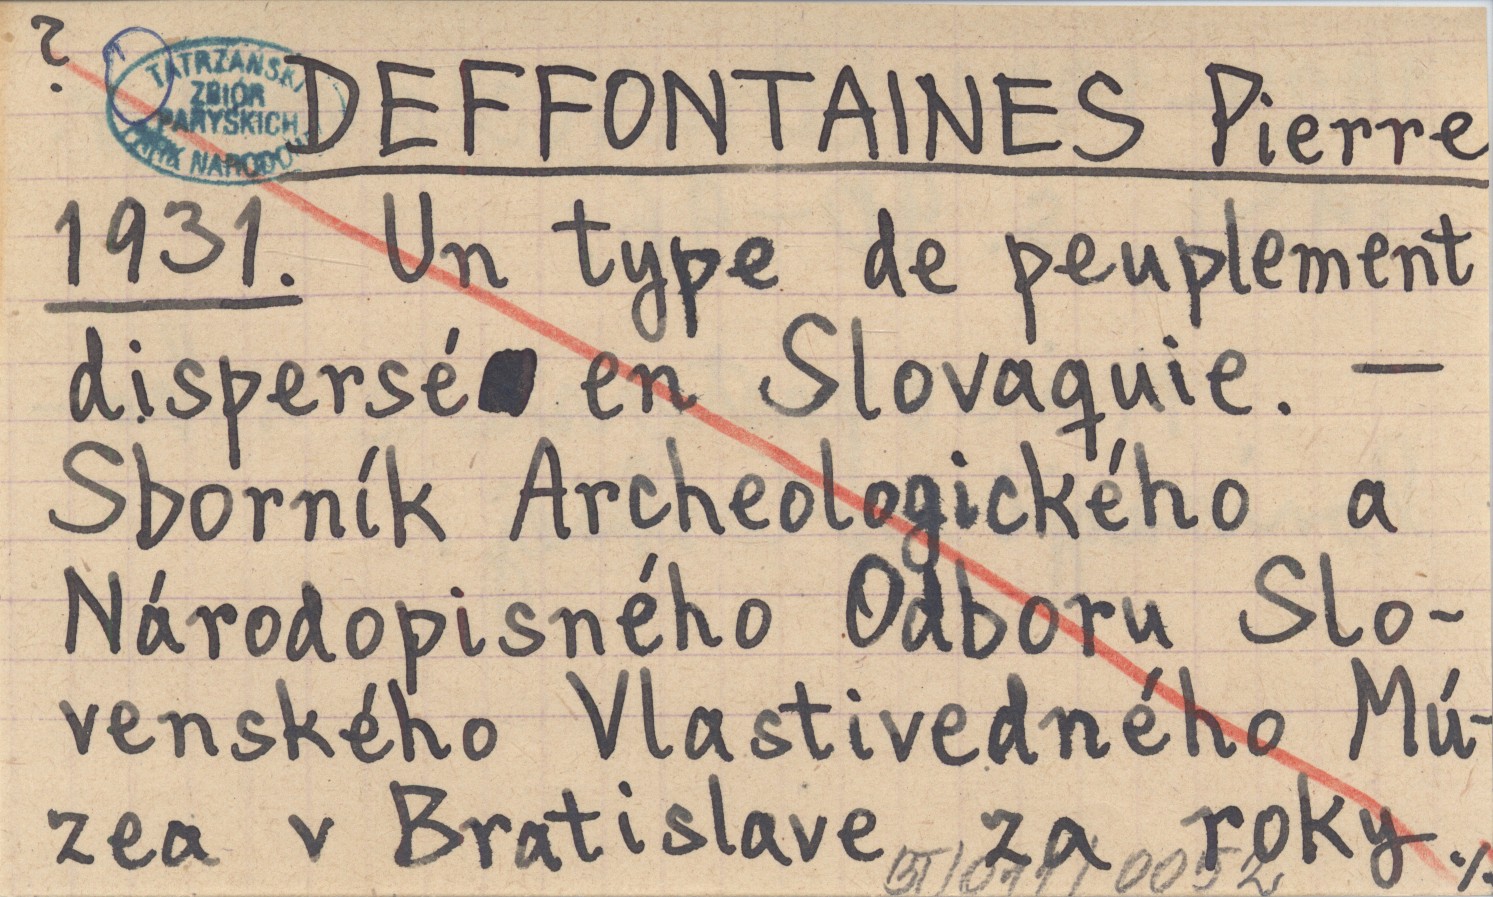 ?
TATRZAŃSKI
ZBIÓR
PARYSKICH
PARK NARODOW
DEFFONTAINES Pierre
1931. Un type de peuplement
dispersé en Slovaquie. —
Sborník Archeologického a
Národopisného Odboru Slo-
venského Vlastivedného Mú-
zea v Bratislave za roky ./.
BT/011/0052